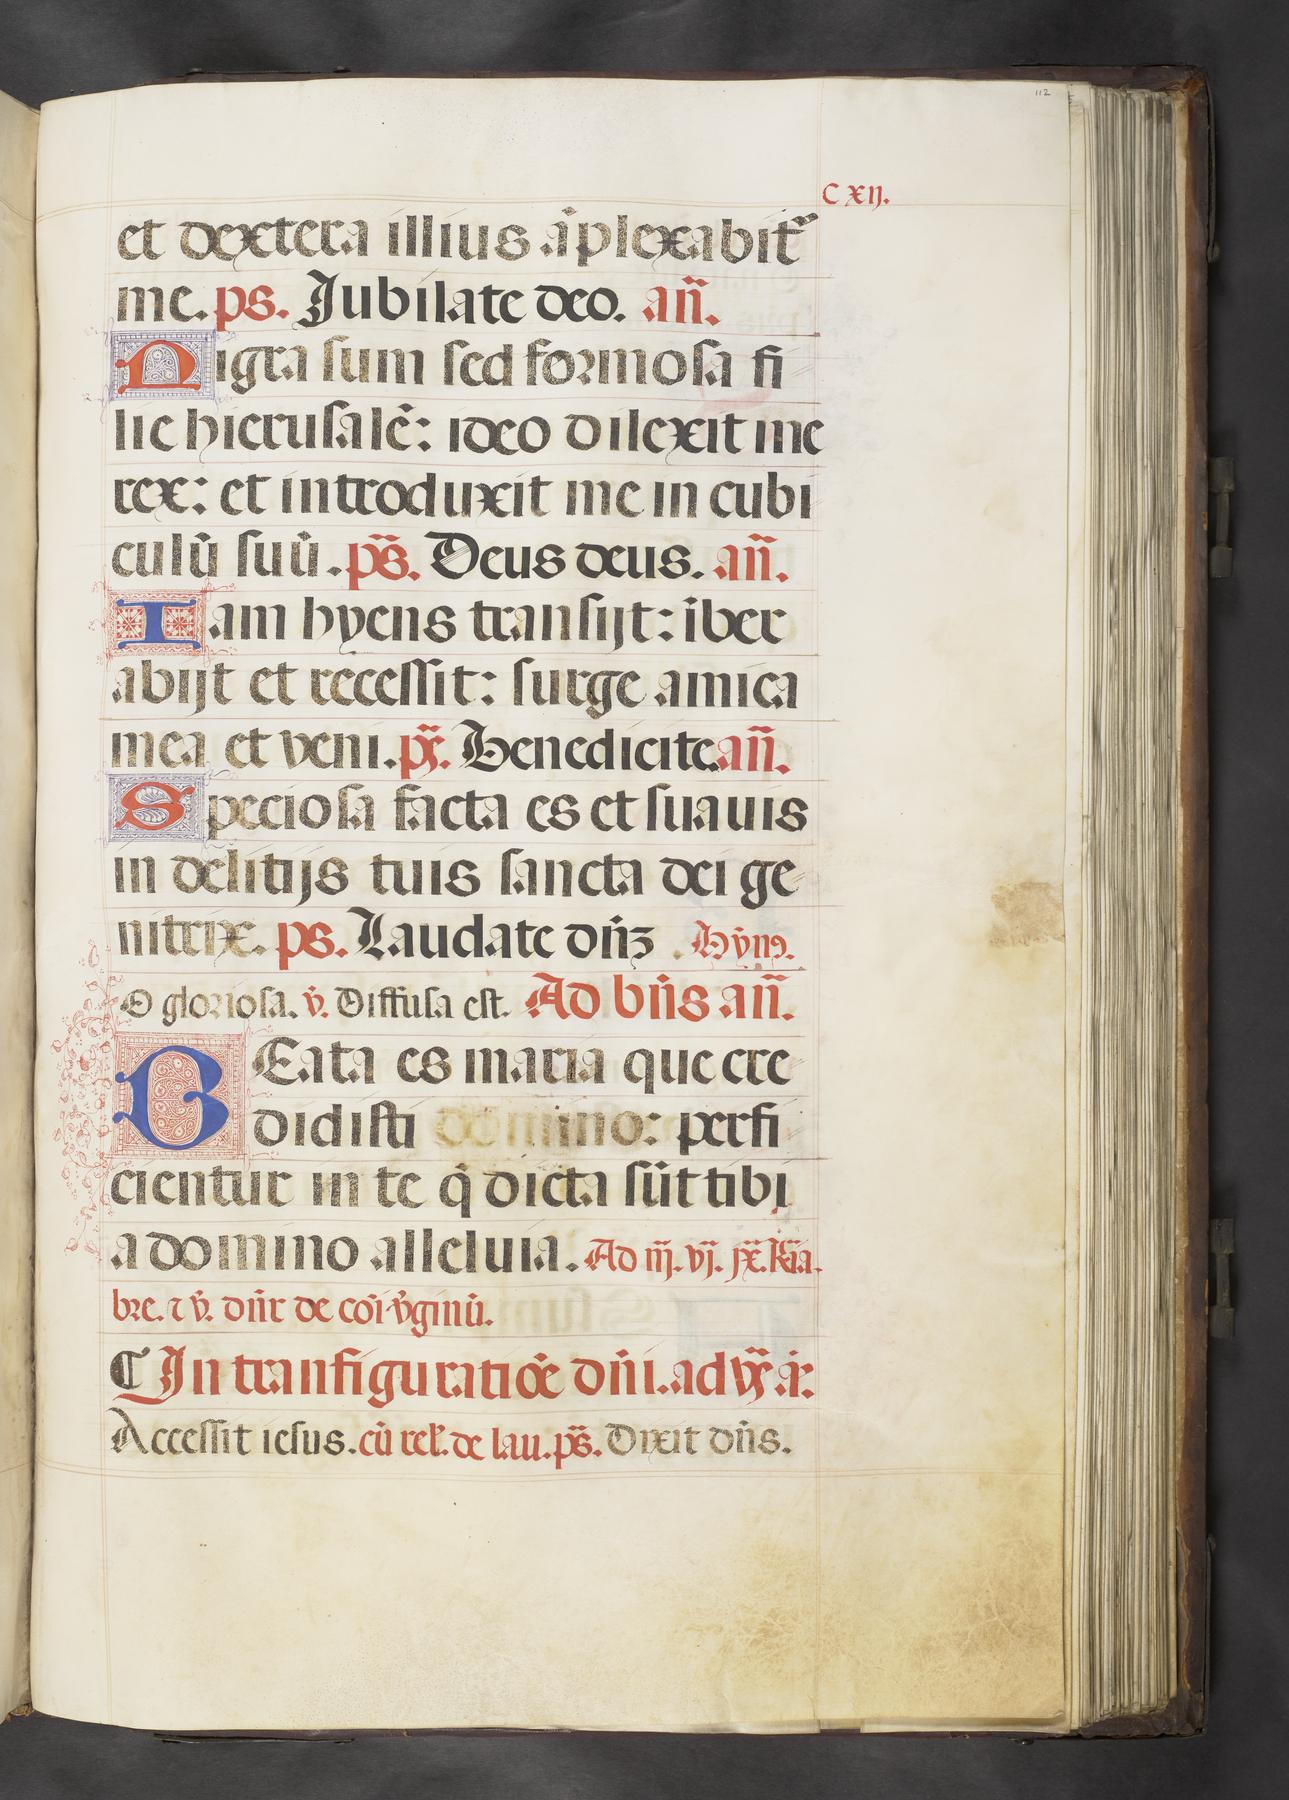 112
C xij.
et dextera illius āplexabit᷑
me. ps. Jubilate deo. añ.
Nigra sum sed formosa fi
lie hierusalē: ideo dilexit me
rex: et introduxit me in cubi
culū suū. ps̄. Deus deus. añ.
Iam hyens transijt: iber
abijt et recessit: surge amica
mea et veni. ps̄. Benedicite. añ.
Speciosa facta es et suauis
in delitijs tuis sancta dei ge
nitrix. ps. Laudate dn̄ꝫ. Hȳnꝯ.
O gloriosa. v̄. Diffusa est. Ad bn̄s añ.
BEata es maria que cre
didisti domino: perfi
cientur in te q̄ dicta sūt tibi
a domino alleluia. Ad iij. vj. ix. R̄ia.
bre. ⁊ v̄. dn̄r de coī v̄ginū.
¶ In tranfiguratiōe dn̄i. ad vs̄. a᷑:
Accessit iesus. cū rel̄. de lau. ps̄. Dixit dn̄s.